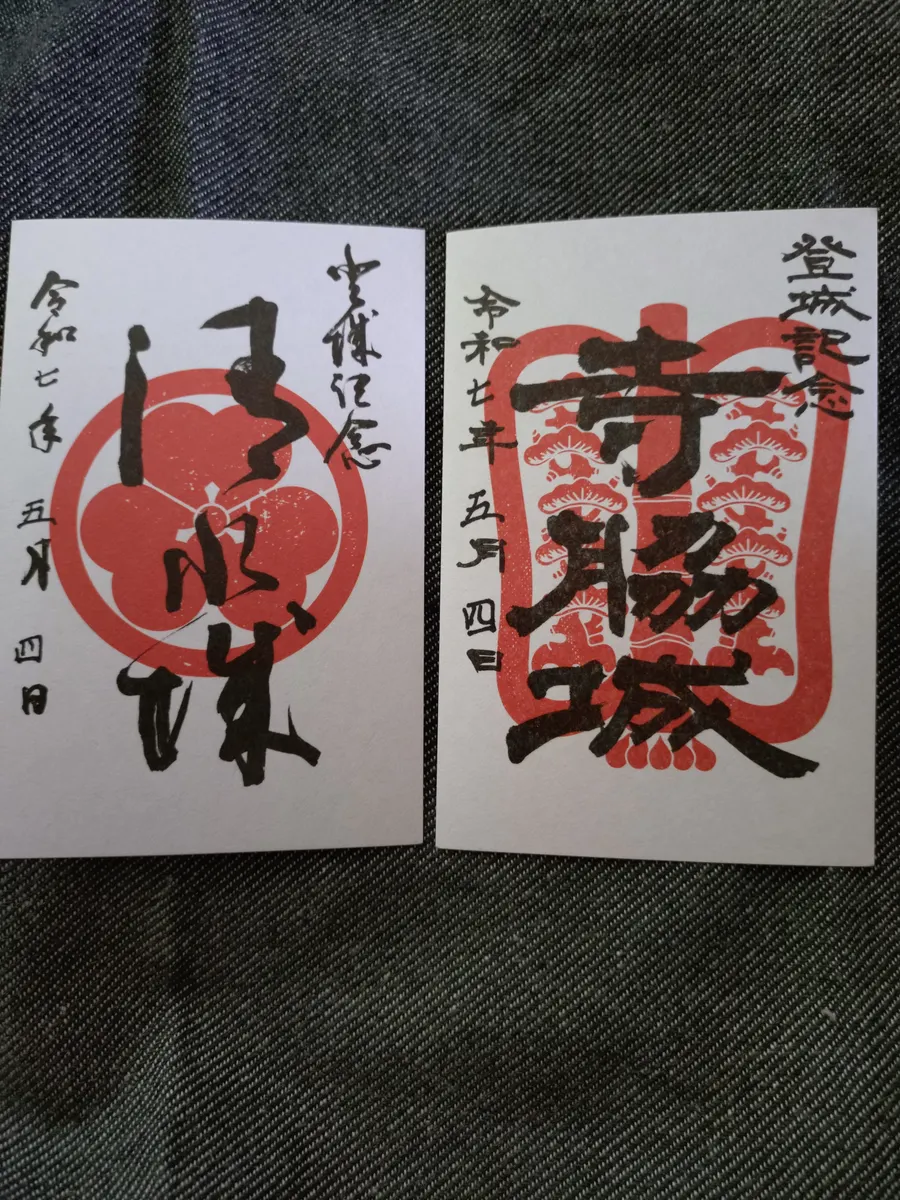 登城記念
清水城
令和七年 五月 四日
登城記念
寺脇城
令和七年 五月 四日